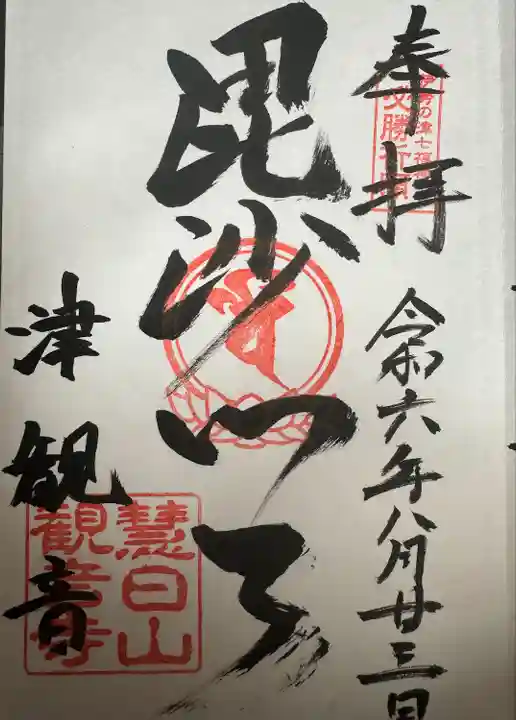 奉拝
伊勢の津七福神
必勝祈願
令和六年八月廿三日
毘沙門天
津観音
慧日山
観音寺